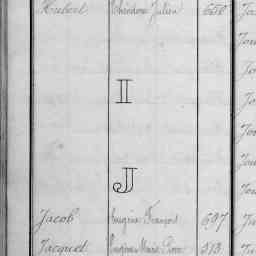 Hubert Théodore Julien 650
I
J
Jacob Eugène François 697
Jacquet Eugène Marie Pierre 513